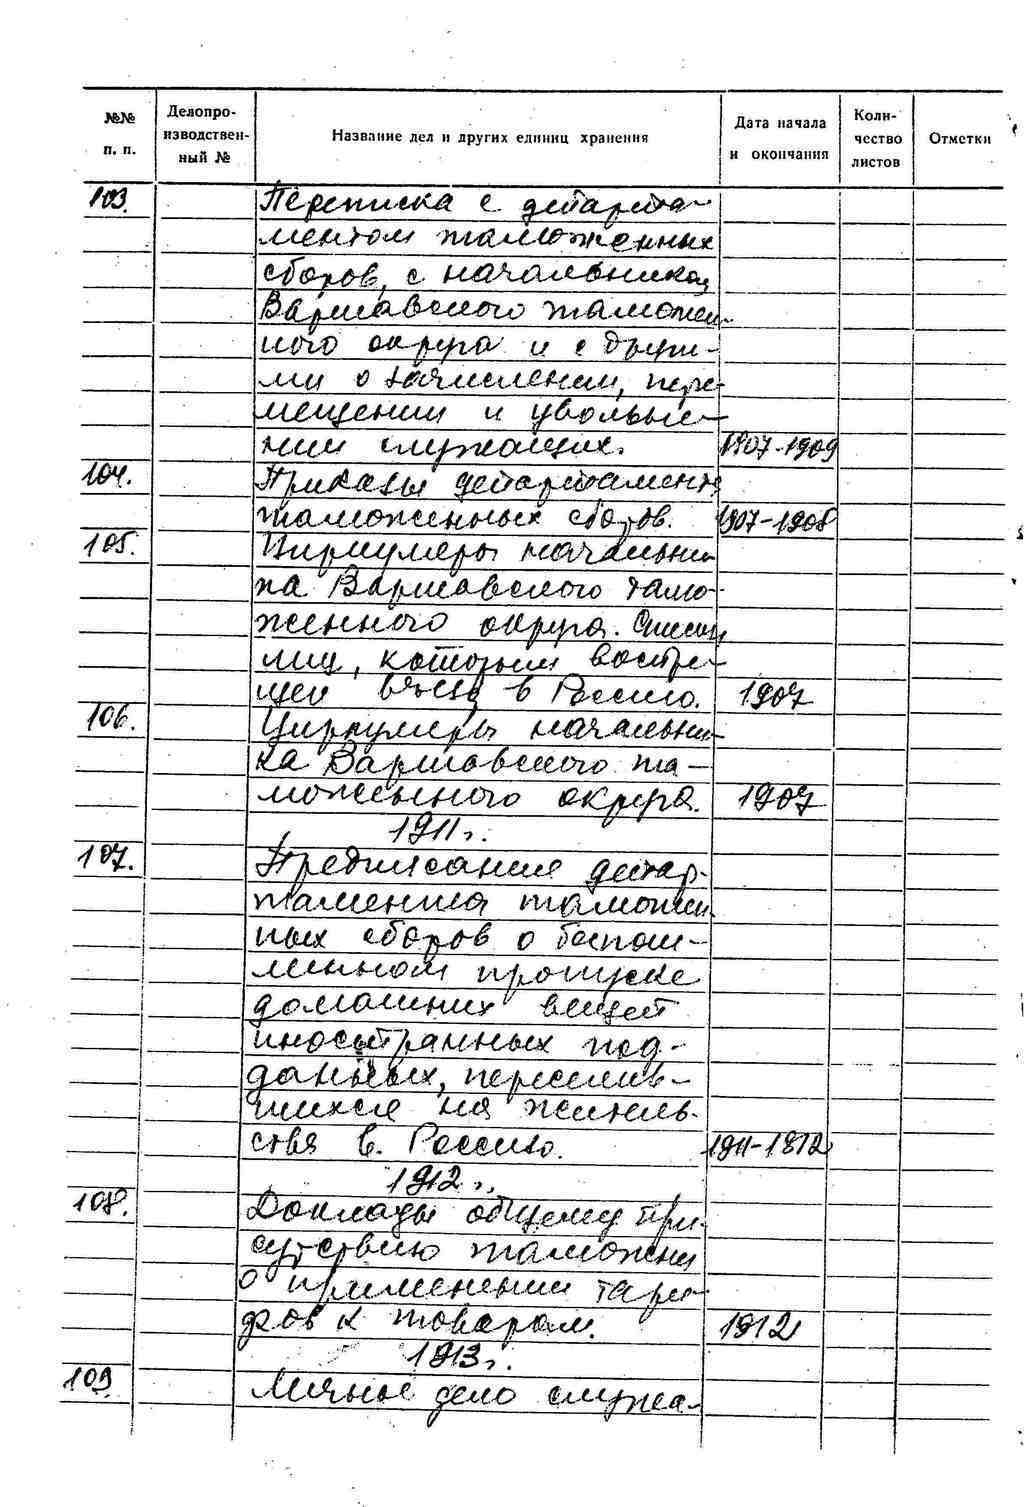 №№ п. п.
Делопроизводственный №
Название дел и других единиц хранения
Дата начала и окончания
Количество листов
Отметки
103. Переписка с департа-
ментом таможенных
сборов, с начальником
Варшавского таможен-
ного округа и с други-
ми о зачислении, пере-
мещении и увольне-
нии служащих. 1907-1909
104. Приказы департамента
таможенных сборов. 1907-1908
105. Циркуляры начальни-
ка Варшавского тамо-
женного округа. Списки
лиц, которым воспре-
щен въезд в Россию. 1907
106. Циркуляры начальни-
ка Варшавского та-
моженного округа. 1907
1911 г.
107. Предписание депар-
тамента таможен-
ных сборов о беспош-
линном пропуске
домашних вещей
иностранных под-
данных, переселив-
шихся на житель-
ства в Россию. 1911-1812
1912 г.
108. Доклады общему при-
сутствию таможни
о применении тари-
фов к товарам. 1912
1913 г.
109. Личное дело служа-